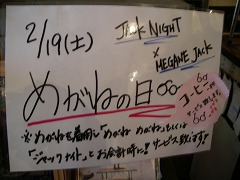 2/19(土)
JACK NIGHT
×
MEGANE JACK
めがねの日
コーヒー
※めがねを着用し「めがねめがね」もしくは
「ジャックナイト」とお会計時に!!サービス致します!